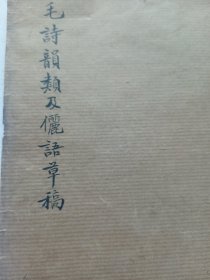 毛詩韻類及儷語草稿